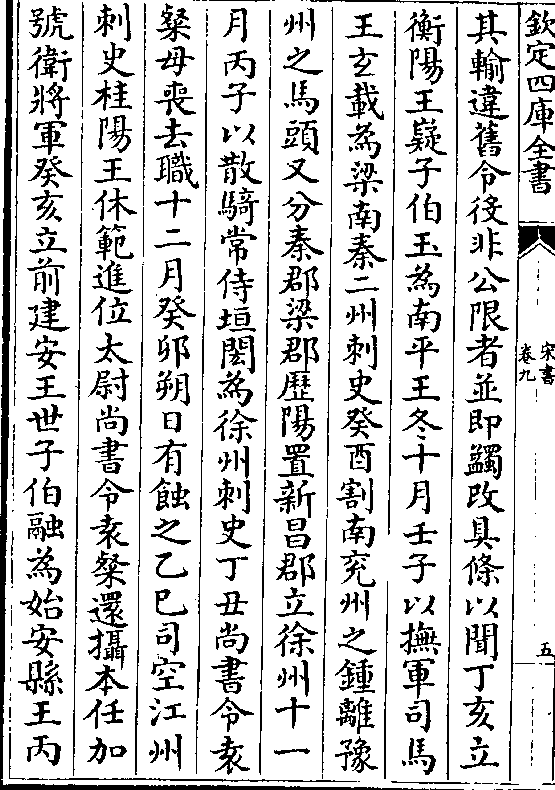 欽定四庫全書
宋書
卷九
五
其輸違舊令役非公限者並即蠲改具條以聞丁亥立
衡陽王嶷子伯玉為南平王冬十月壬子以撫軍司馬
王玄載為梁南秦二州刺史癸酉割南兖州之鍾離豫
州之馬頭又分秦郡梁郡歴陽置新昌郡立徐州十一
月丙子以散騎常侍垣閎為徐州刺史丁丑尚書令袁
粲母喪去職十二月癸卯朔日有蝕之乙巳司空江州
刺史桂陽王休範進位太尉尚書令袁粲還攝本任加
號衛將軍癸亥立前建安王世子伯融為始安縣王丙